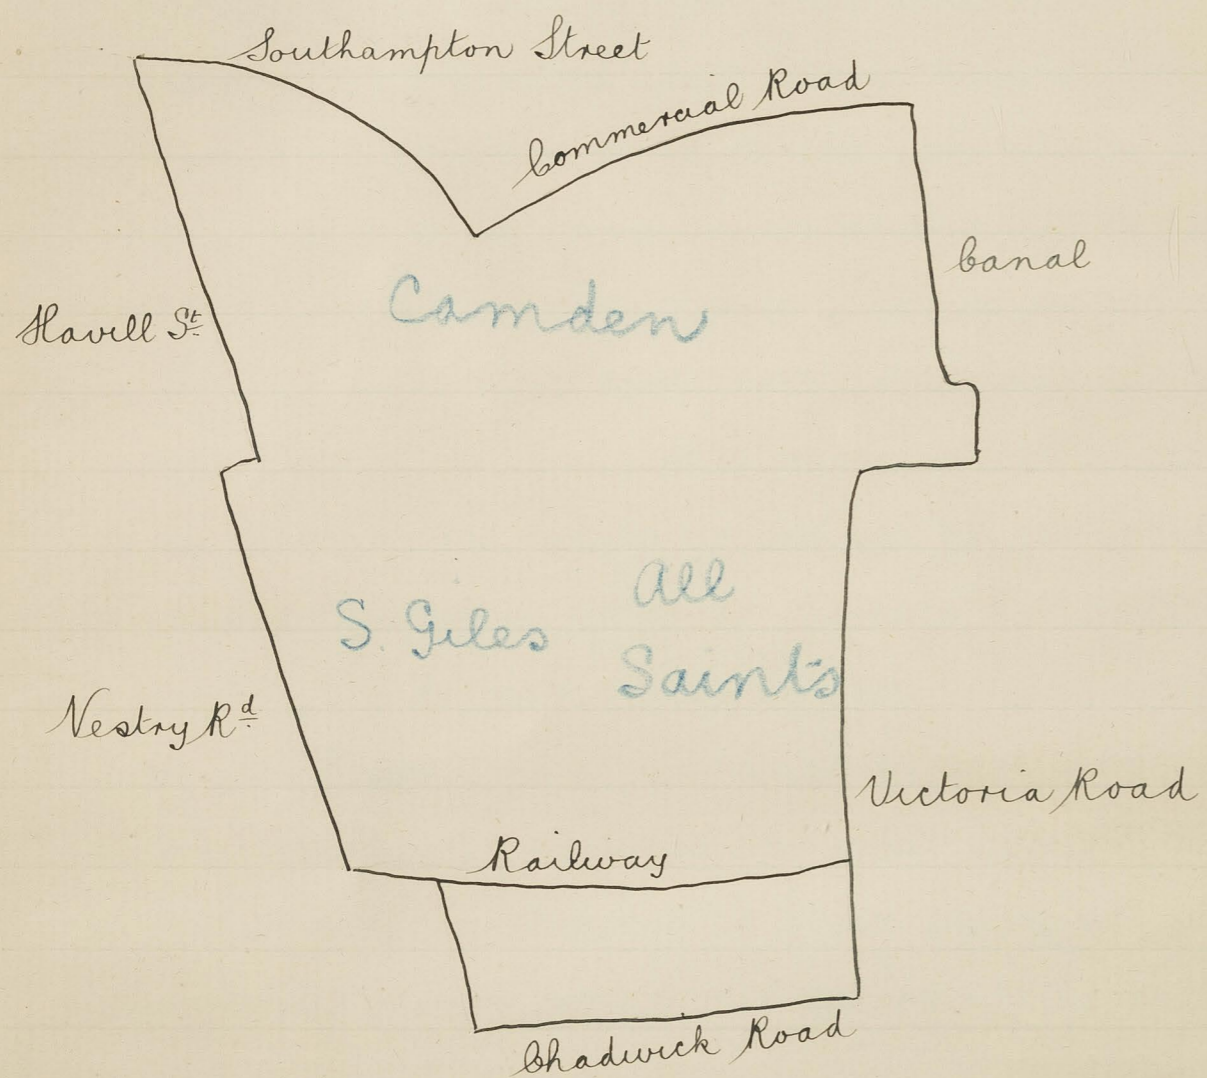 Southampton Street
Commercial Road
Canal
Camden
Havill St
All
S. Giles
Saints
Vestry Rd
Victoria Road
Railway
Chadwick Road